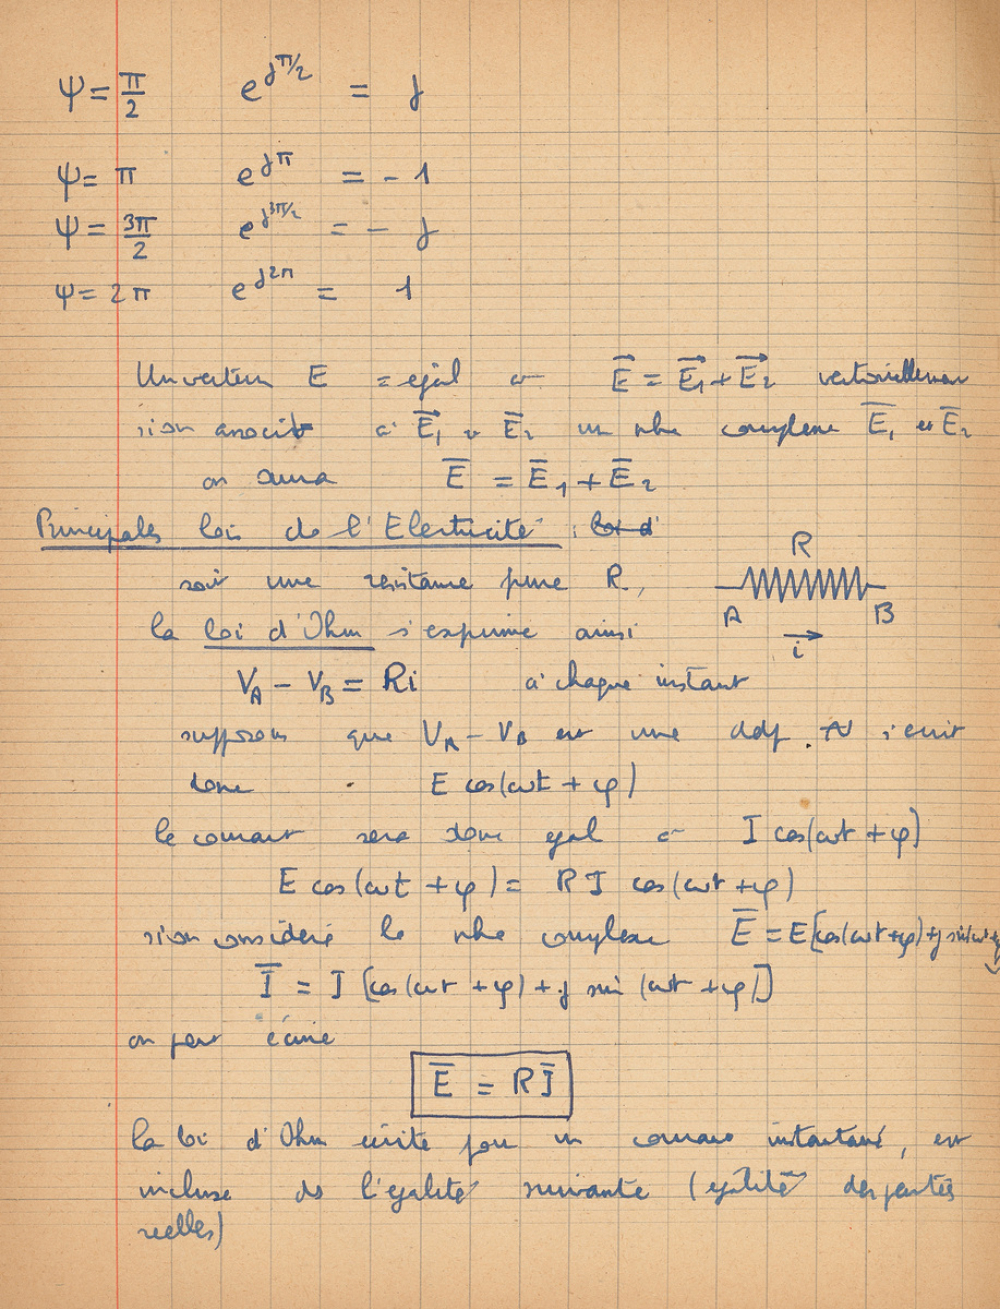 ψ = π/2 e^{jπ/2} = j
ψ = π e^{jπ} = - 1
ψ = 3π/2 e^{j3π/2} = - j
ψ = 2π e^{j2π} = 1
Un vecteur E = egal a E⃗ = E⃗₁ + E⃗₂ vectoriellement
si on associe à E⃗₁ E̅₂ un nbre complexe E̅₁ et E̅₂
on aura E̅ = E̅₁ + E̅₂
Principales lois de l'Electricité : loi d'
R
soit une resistance pure R,
A B
la loi d'Ohm s'exprime ainsi
i
V_A - V_B = Ri à chaque instant
supposons que V_A - V_B est une ddp. s'ecrit
donc E cos(ωt + φ)
le courant sera donc egal a I cos(ωt + φ)
E cos(ωt + φ) = R I cos(ωt + φ)
si on considère le nbre complexe E̅ = E[cos(ωt+φ)+j sin(ωt+φ
I̅ = I [cos(ωt + φ) + j sin (ωt + φ)]
on peut écrire
E̅ = R I̅
la loi d'Ohm écrite pour un courant instantané, est
incluse ds l'égalité suivante (égalité des parties
reelles)